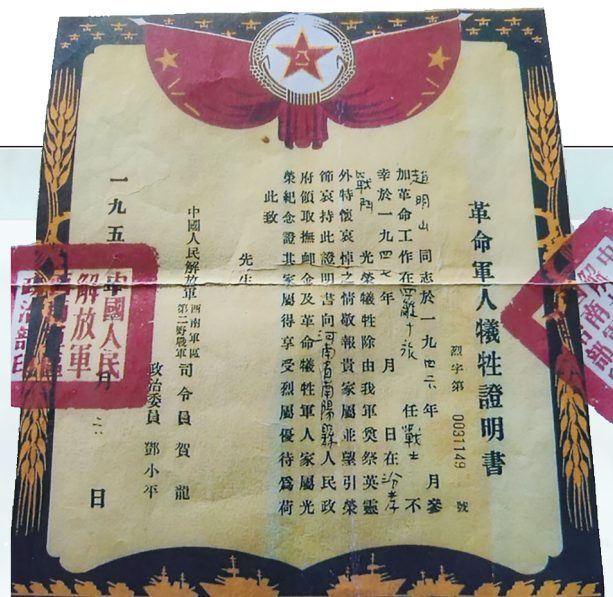 革命軍人犧牲證明書
烈字第 0031149 號
趙明山 同志於一九四六年 月參
加革命工作在四縱十旅 任戰士 不
幸於一九四七年 月 日在汾孝
戰鬥 光榮犧牲除由我軍奠祭英靈
外特懷哀悼之情敬報貴家屬並望引榮
節哀持此證明書向河南省南陽縣人民政
府領取撫卹金及革命犧牲軍人家屬光
榮紀念證其家屬得享受烈屬優待爲荷
此致
先生
中國人民解放軍 西南軍區 第二野戰軍 司令員 賀龍
政治委員 鄧小平
一九五 年 月 日
中國人民
解放軍